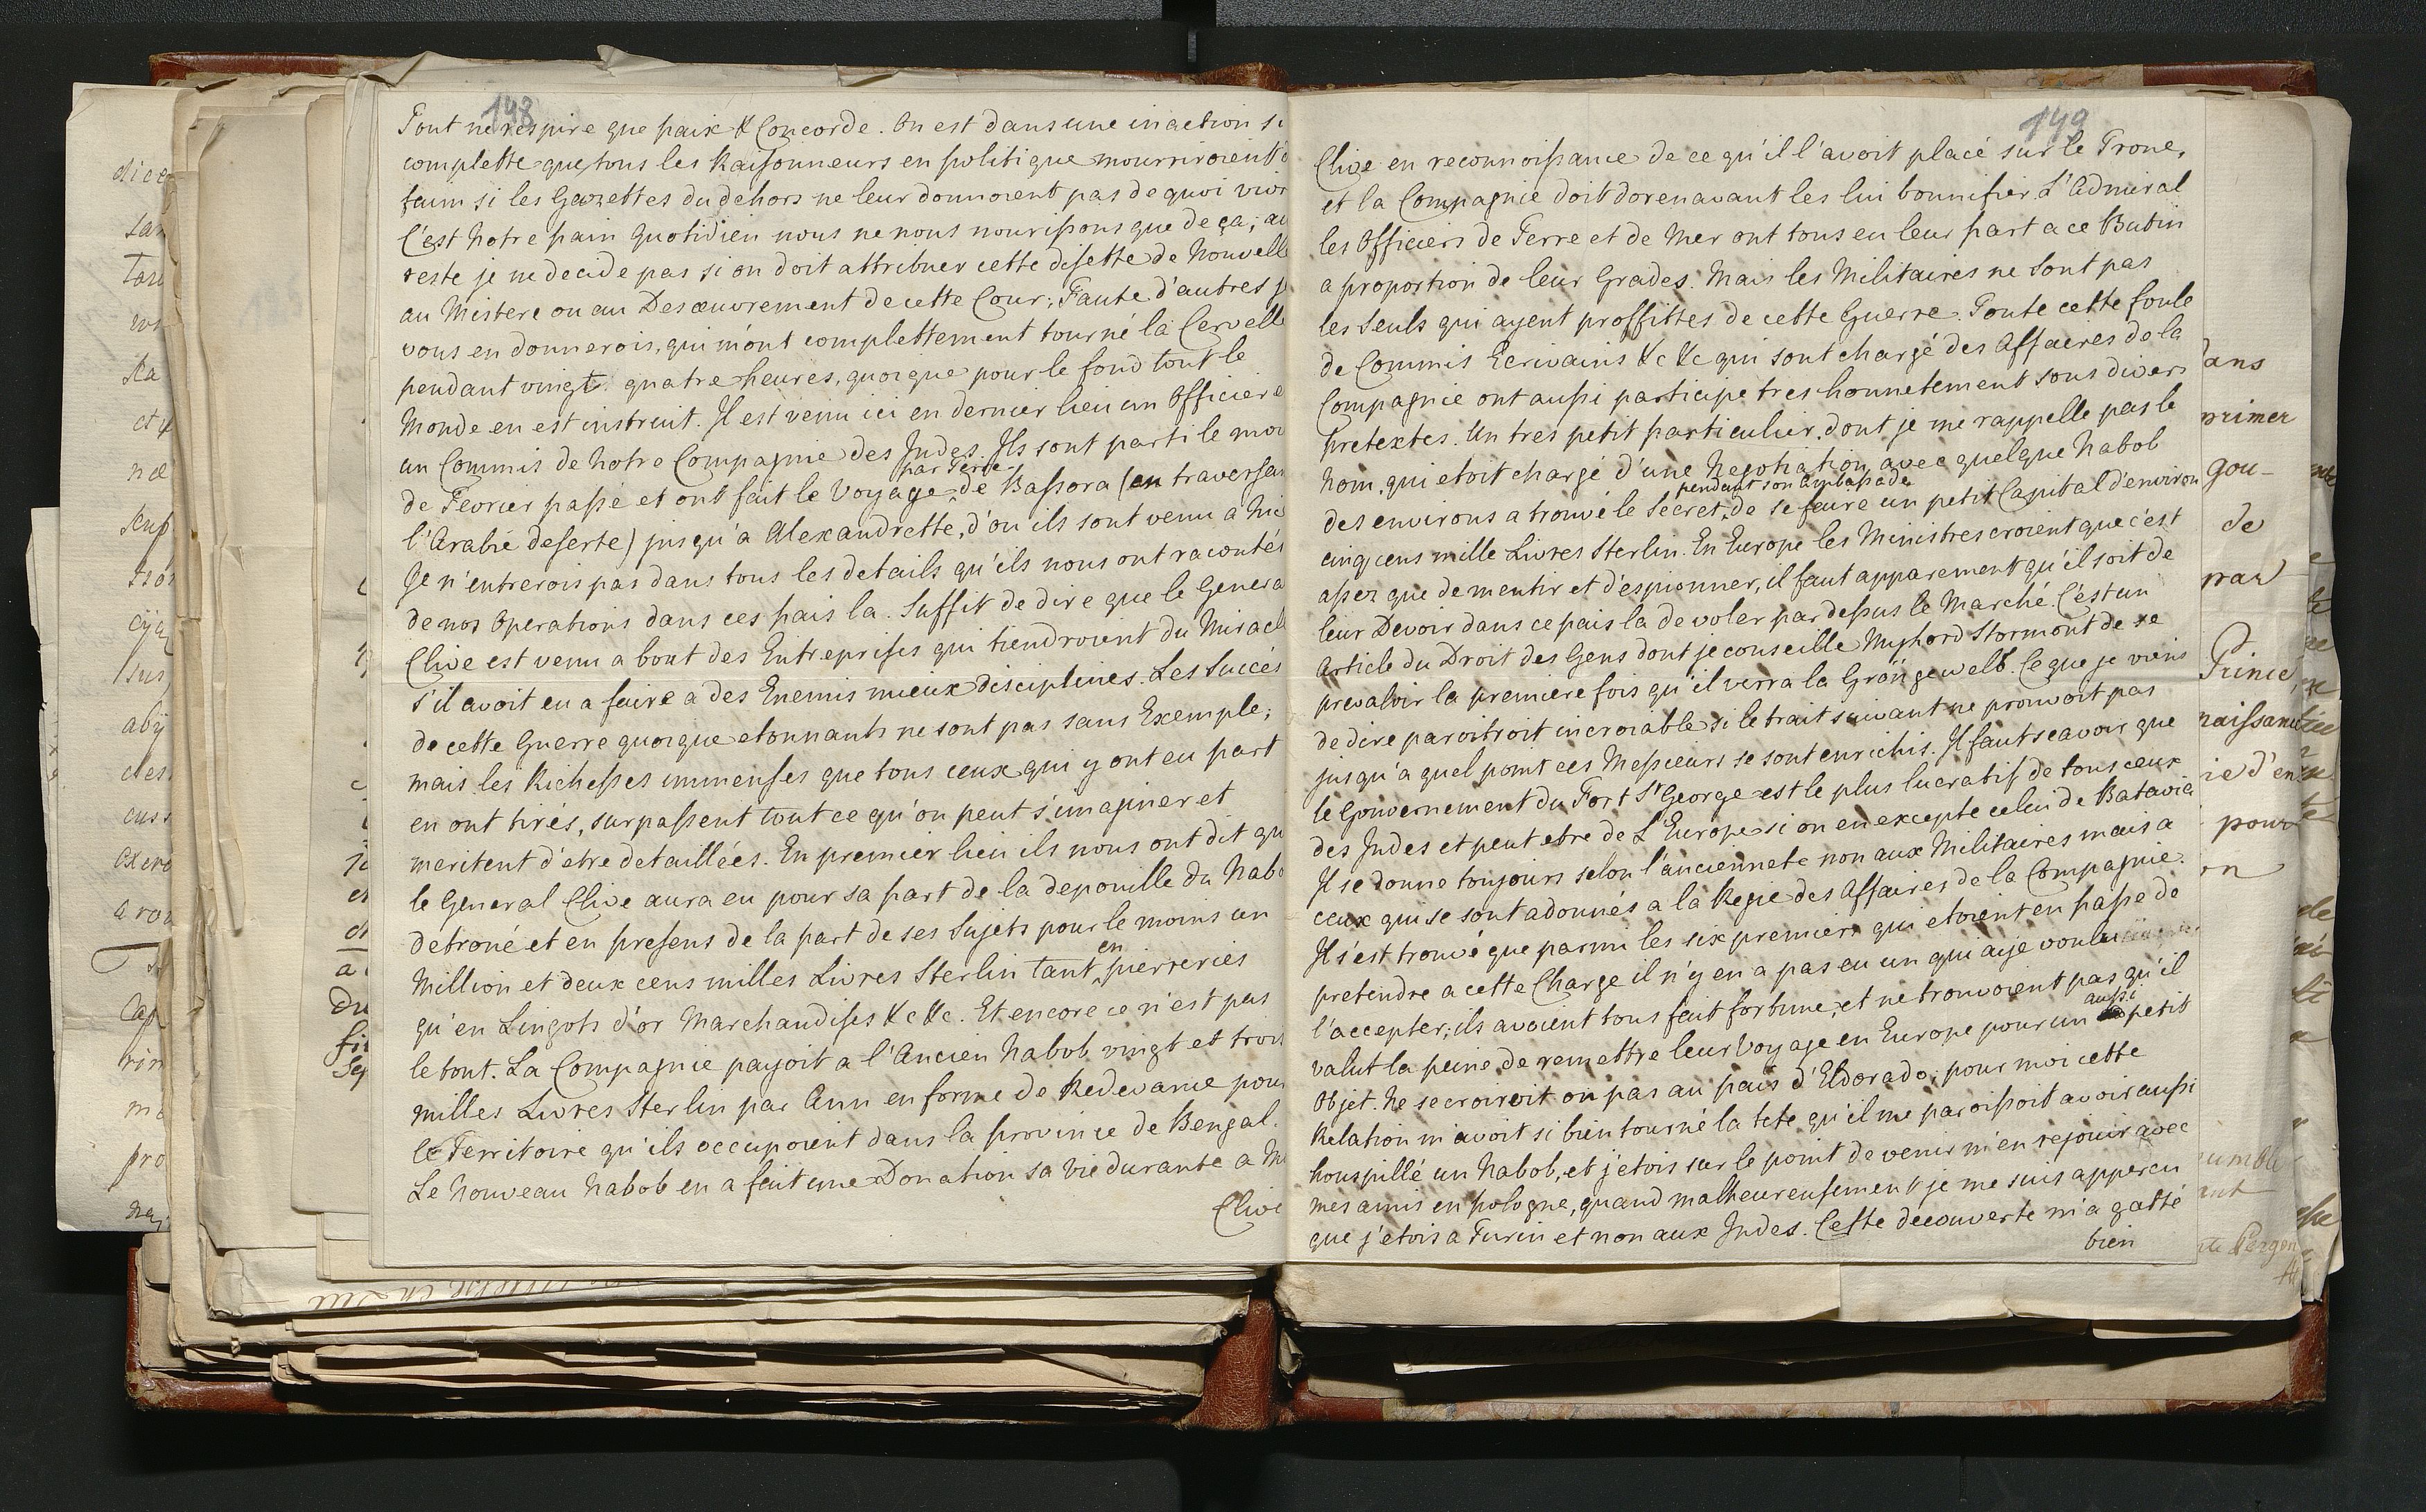 148
Tout ne respire que paix & Concorde. On est dans une inaction si
complette que tous les Raisonneurs en politique mourriroient
faim si les Gazettes du dehors ne leur donnoient pas de quoi vivr
C'est Notre pain Quotidien nous ne nous nourissons que de ça; au
reste je ne decide pas si on doit attribuer cette disette de Nouvelle
au Mistere ou au Desœuvrement de cette Cour; Faute d'autres j
vous en donnerois, qui m'ont complettement tourné la Cervelle
pendant vingt quatre heures, quoique pour le fond tout le
Monde en est instruit. Il est venu ici en dernier lieu un Officier e
un Commis de Notre Compagnie des Indes. Ils sont parti le moi
de Fevrier passé et ont fait le Voyage par Terre de Bassora (en traversan
l'Arabie deserte) jusqu'a Alexandrette, d'ou ils sont venu a Ni
Je n'entrerois pas dans tous les details qu'ils nous ont racontés
de nos Operations dans ces pais la. Suffit de dire que le Genera
Clive est venu a bout des Entreprises qui tiendroient du Miracle
s'il avoit eu a faire a des Enemis mieux disciplinés. Les Succés
de cette Guerre quoique etonnants ne sont pas sans Exemple;
mais les Richesses immenses que tous ceux qui y ont eu part
en ont tirés, surpassent tout ce qu'on peut s'imaginer et
meritent d'etre detaillées. En premier lieu ils nous ont dit qu
le General Clive aura eu pour sa part de la depouille du Nabo
detroné et en presens de la part de ses Sujets pour le moins un
Million et deux cens milles Livres Sterlin tant en pierreries
qu'en Lingots d'or Marchandises &c &c. Et encore ce n'est pas
le tout. La Compagnie payoit a l'Ancien Nabob vingt et trois
milles Livres Sterlin par Ann en forme de Redevance pour
le Territoire qu'ils occupoient dans la province de Bengal.
Le Nouveau Nabob en a fait une Donation sa Vie durante a M
Clive
149
Clive en reconnoissance de ce qu'il l'avoit placé sur le Trone,
et la Compagnie doit dorenavant les lui bonnifier. L'Admiral
les Officiers de Terre et de Mer ont tous eu leur part a ce Butin
a proportion de leur Grades. Mais les Militaires ne sont pas
les Seuls qui ayent proffittes de cette Guerre. Toute cette foule
de Commis Ecrivains &c &c qui sont chargé des Affaires de la
Compagnie ont aussi participe tres honnetement sous divers
pretextes. Un tres petit particulier, dont je me rappelle pas le
Nom, qui etoit chargé d'une Negotiation avec quelque Nabob
des environs a trouvé le Secret, pendant son Ambassade de se faire un petit Capital d'environ
cinq cens mille Livres Sterlin. En Europe les Ministres croient que c'est
assez que de mentir et d'espionner, il faut apparement qu'il soit de
leur Devoir dans ce pais la de voler par dessus le Marché. C'est un
Article du Droit des Gens dont je conseille Mylord Stormont de se
prevaloir la premiere fois qu'il verra la Gröngewelb. Ce que je viens
de dire paroitroit incroiable si le trait suivant ne prouvoit pas
jusqu'a quel point ces Messieurs se sont enrichis. Il faut scavoir que
le Gouvernement du Fort St George est le plus lucratif de tous ceux
des Indes et peut etre de L'Europe si on en excepte celui de Batavia
Il se donne toujours selon l'anciennete non aux Militaires mais a
ceux qui se sont adonnés a la Regie des Affaires de la Compagnie.
Il s'est trouvé que parmi les six premiers qui etoient en passe de
pretendre a cette Charge il n'y en a pas eu un qui aye voulu
l'accepter; ils avoient tous fait fortune, et ne trouvoient pas qu'il
valut la peine de remettre leur Voyage en Europe pour un aussi petit
Objet. Ne se croiroit on pas au païs d'Eldorado; pour moi cette
Relation m'avoit si bien tourné la tete qu'il me paroissoit avoir aussi
houspillé un Nabob, et j'etois sur le point de venir m'en rejouir avec
mes amis en pologne, quand malheureusement je me suis appercu
que j'etois a Turin et non aux Indes. Cette decouverte m'a gatté
bien